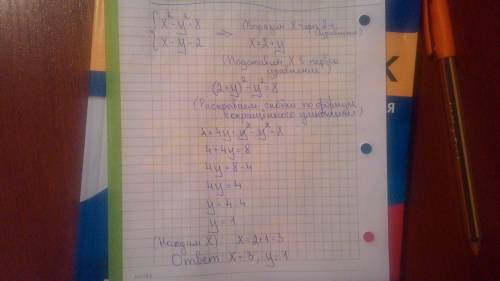 {x²-y²=8 => (Выразим x через 2-е уравнение)
{x-y=2 x=2+y
(Подставим x в первое
уравнение)
(2+y)²-y²=8
(Раскрываем скобки по формуле
сокращённого умножения)
4+4y+y²-y²=8
4+4y=8
4y=8-4
4y=4
y=4:4
y=1
(Находим x) x=2+1=3
Ответ x=3, y=1